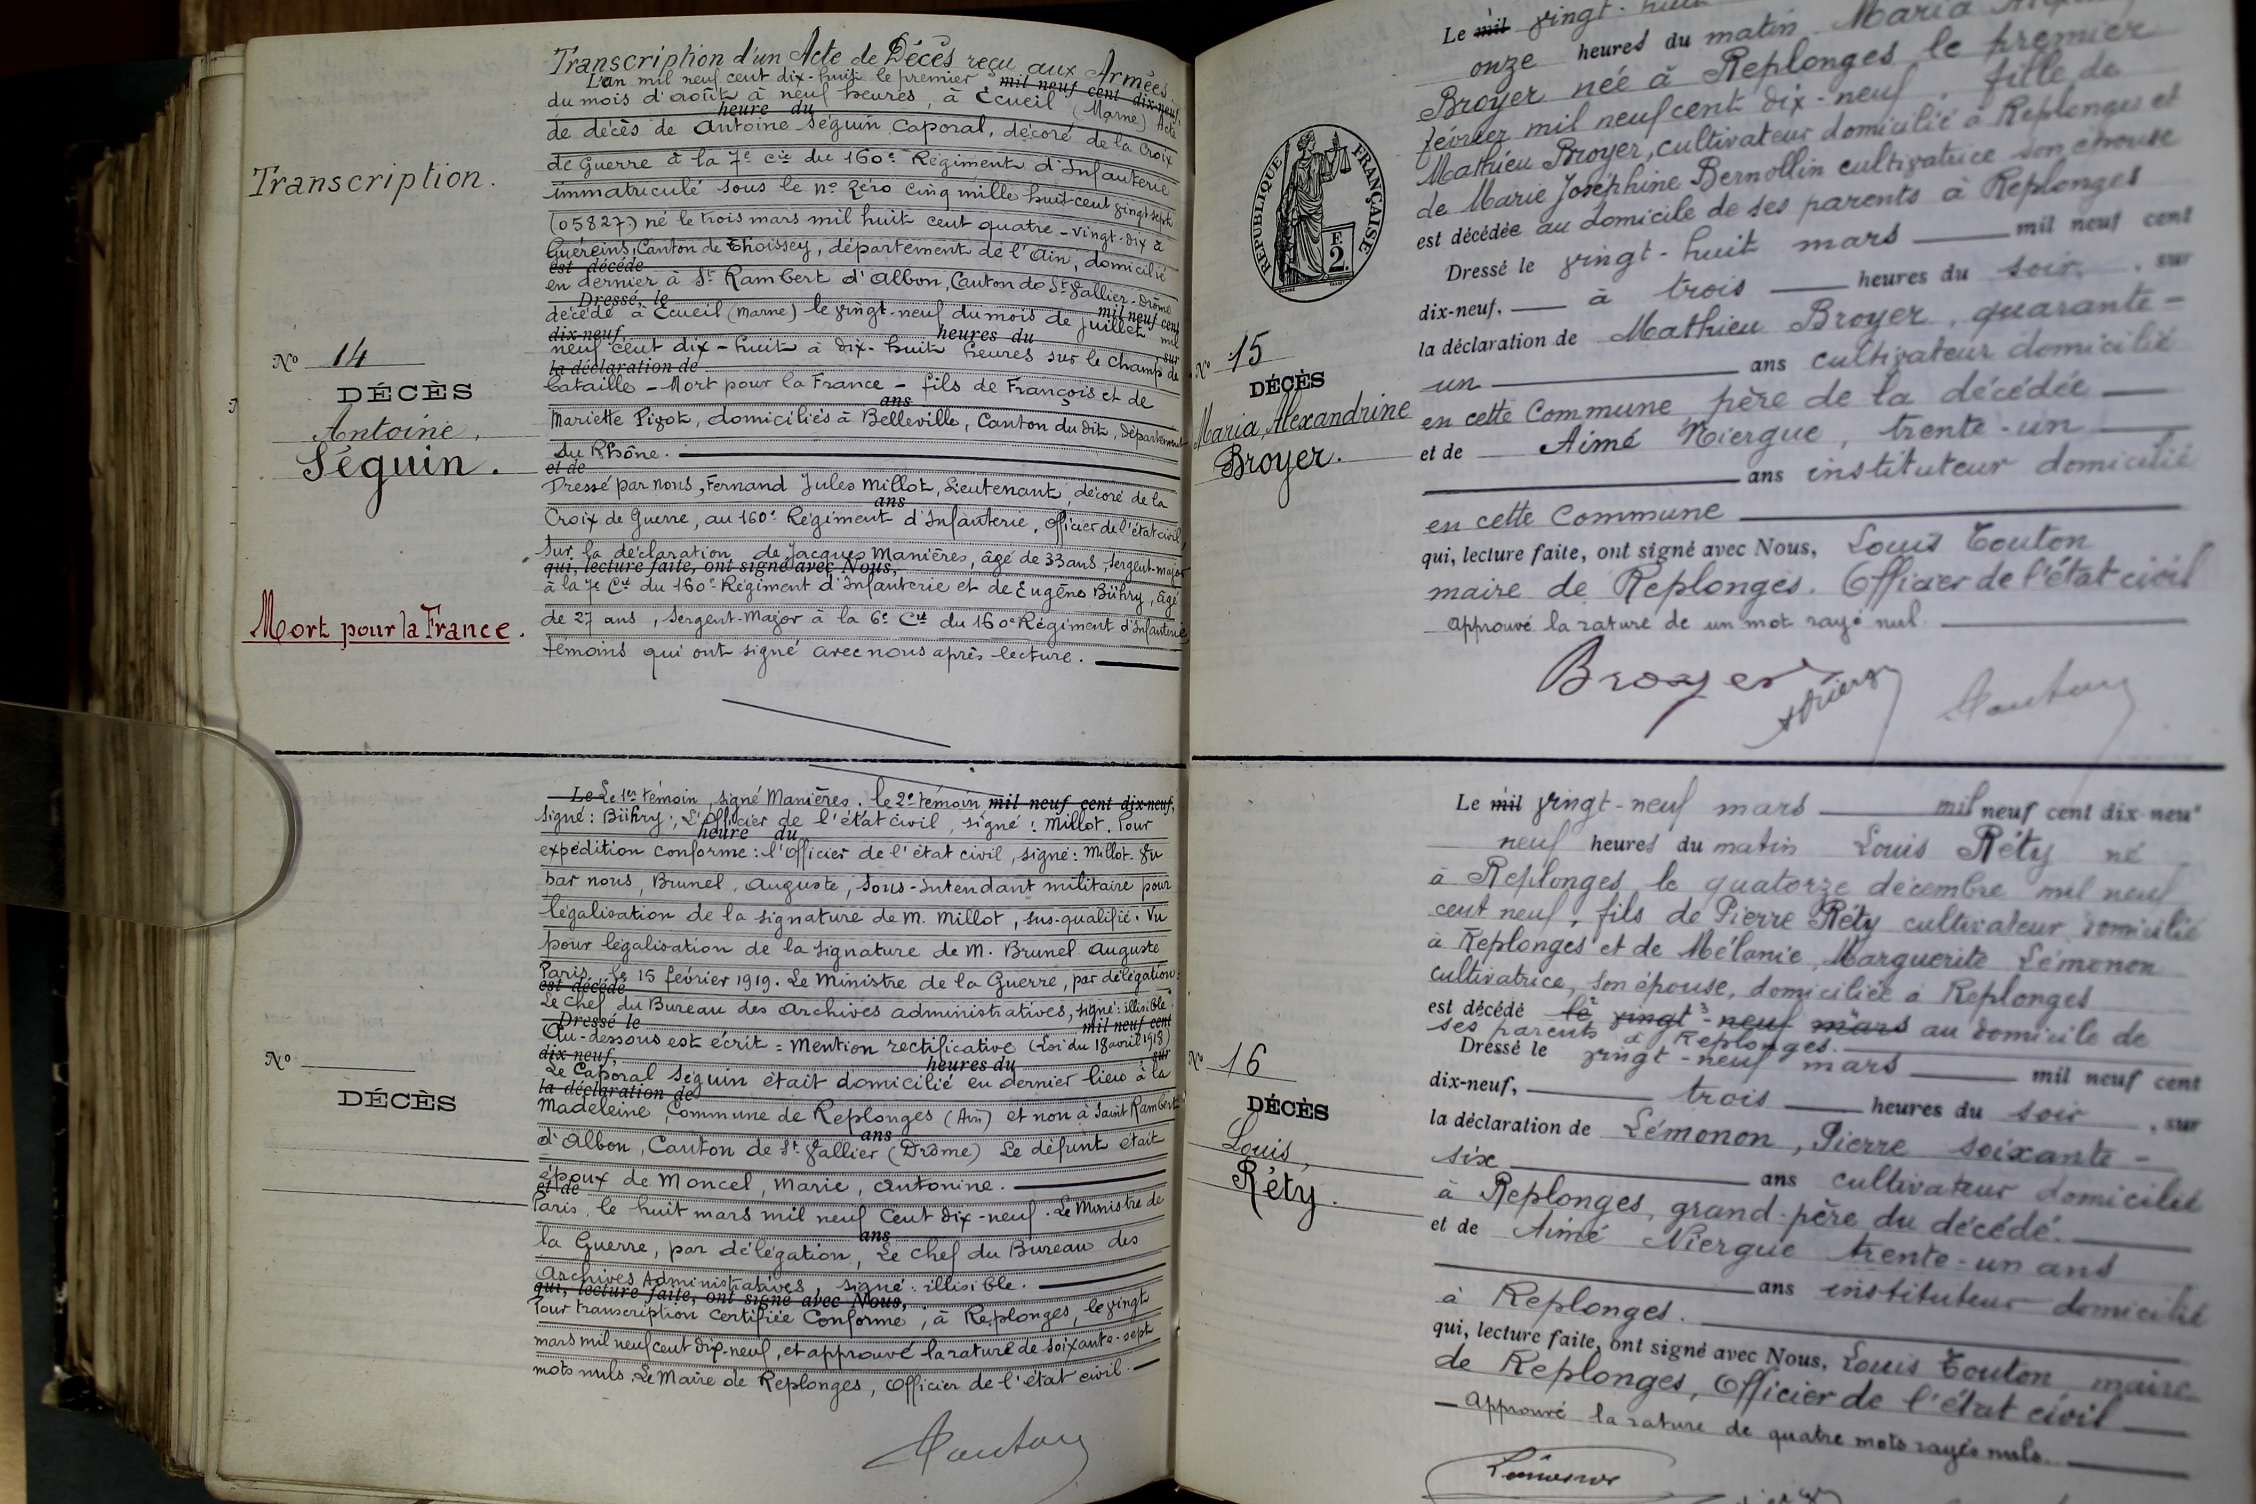 Transcription d'un Acte de Décès reçu aux Armées
L'an mil neuf cent dix-huit le premier mil neuf cent dix-neuf,
du mois d'août à neuf heures, à Écueil (Marne) Acte
heure du
de décès de Antoine Séguin Caporal, décoré de la Croix
de Guerre à la 7e Cie du 160e Régiment d'Infanterie
Transcription.
immatriculé sous le no zéro cinq mille huit cent vingt sept
(05827) né le trois mars mil huit cent quatre-vingt-dix à
Guéreins, Canton de Thoissey, département de l'Ain, domicilié
est décédé
en dernier à St Rambert d'Albon, Canton de St Vallier-Drôme
Dressé, le mil neuf cent
décédé à Écueil (Marne) le vingt-neuf du mois de juillet mil
dix-neuf, heures du sur
neuf cent dix-huit à dix-huit heures sur le champ de
la déclaration de
No 14
DÉCÈS
Antoine,
Séguin.
bataille - Mort pour la France - fils de François et de
ans
Mariette Pizot, domiciliés à Belleville, Canton du dit, département
du Rhône.
et de
Dressé par nous, Fernand Jules Millot, Lieutenant, décoré de la
ans
Croix de Guerre, au 160e Régiment d'Infanterie, officier de l'état civil,
Sur la déclaration de Jacques Manières, âgé de 33 ans, Sergent-major
qui, lecture faite, ont signé avec Nous,
à la 7e Cie du 160e Régiment d'Infanterie et de Eugène Bühry, âgé
Mort pour la France.
de 27 ans, Sergent-Major à la 6e Cie du 160e Régiment d'Infanterie
témoins qui ont signé avec nous après lecture.
Le Le 1er témoin, signé Manières. le 2e témoin mil neuf cent dix-neuf,
signé: Bühry; L'officier de l'état civil, signé: Millot. Pour
heure du
expédition conforme: l'officier de l'état civil, signé: Millot. Vu
par nous, Brunel, Auguste, Sous-Intendant militaire pour
légalisation de la signature de M. Millot, sus-qualifié. Vu
pour légalisation de la signature de M. Brunel Auguste
Paris, le 15 février 1919. Le Ministre de la Guerre, par délégation:
est décédé
Le Chef du Bureau des Archives administratives, signé: illisible.
Dressé le mil neuf cent
Au-dessous est écrit = Mention rectificative (Loi du 18 avril 1918)
dix-neuf, heures du sur
Le Caporal Séguin était domicilié en dernier lieu à la
la déclaration de
No
DÉCÈS
Madeleine, Commune de Replonges (Ain) et non à Saint Rambert
ans
d'Albon, Canton de St Vallier (Drôme) Le défunt était
époux de Moncel, Marie, Antonine.
et de
Paris, le huit mars mil neuf cent dix-neuf. Le Ministre de
ans
la Guerre, par délégation, Le Chef du Bureau des
Archives Administratives, signé: illisible.
qui, lecture faite, ont signé avec Nous,
Pour transcription certifiée Conforme, à Replonges, le vingt
mars mil neuf cent dix-neuf, et approuvé la rature de soixante-sept
mots nuls. Le Maire de Replonges, Officier de l'état civil.
Le mil vingt-huit
onze heures du matin Maria
Broyer née à Replonges le premier
février mil neuf cent dix-neuf, fille de
Mathieu Broyer, cultivateur domicilié à Replonges et
de Marie Joséphine Bernollin cultivatrice son épouse
est décédée au domicile de ses parents à Replonges
RÉPUBLIQUE FRANÇAISE
F.
2.
Dressé le vingt-huit mars mil neuf cent
dix-neuf, à trois heures du soir, sur
la déclaration de Mathieu Broyer, quarante-
un ans cultivateur domicilié
No 15
DÉCÈS
Maria, Alexandrine
Broyer.
en cette Commune père de la décédée
et de Aimé Niergue, trente-un
ans instituteur domicilié
en cette Commune
qui, lecture faite, ont signé avec Nous, Louis Touton
maire de Replonges. Officier de l'état civil
Approuvé la rature de un mot rayé nul.
Broyer
Le mil vingt-neuf mars mil neuf cent dix-neuf
neuf heures du matin Louis Réty né
à Replonges le quatorze décembre mil neuf
cent neuf, fils de Pierre Réty cultivateur domicilié
à Replonges et de Mélanie, Marguerite Lémonon
cultivatrice, son épouse, domiciliée à Replonges
est décédé le vingt-neuf mars au domicile de
ses parents à Replonges.
Dressé le vingt-neuf mars mil neuf cent
No 16
DÉCÈS
Louis,
Réty.
dix-neuf, trois heures du soir, sur
la déclaration de Lémonon, Pierre soixante-
six ans cultivateur domicilié
à Replonges, grand-père du décédé.
et de Aimé Niergue trente-un ans
ans instituteur domicilié
à Replonges.
qui, lecture faite, ont signé avec Nous, Louis Touton, maire
de Replonges, Officier de l'état civil
Approuvé la rature de quatre mots rayés nuls.